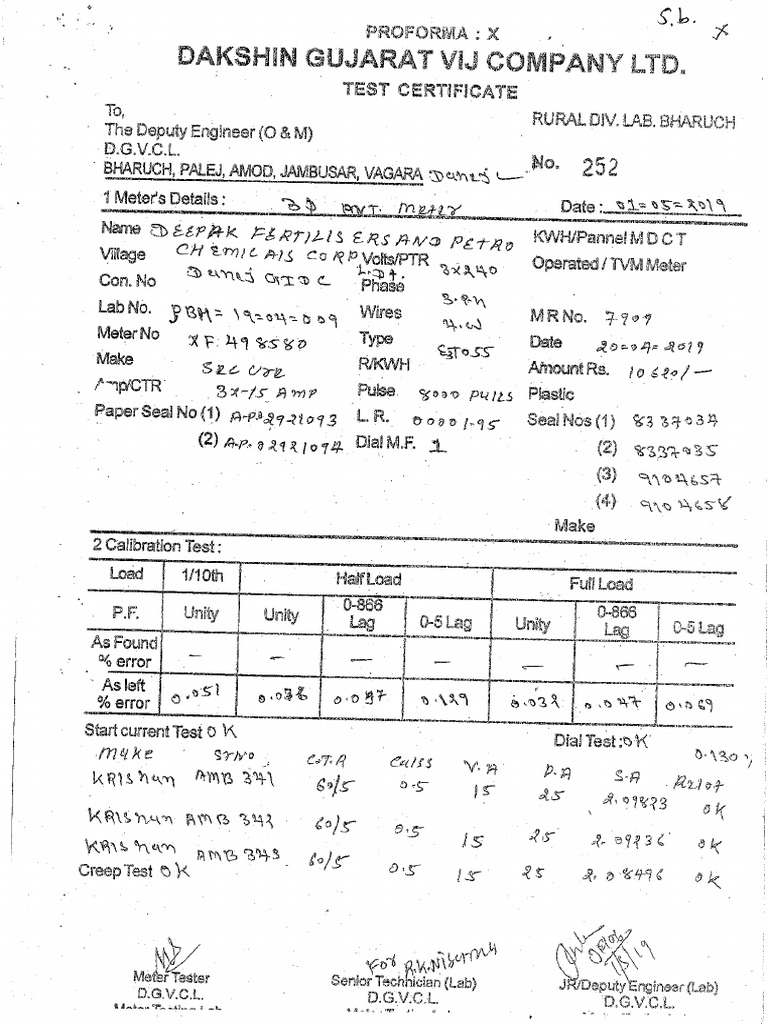 S.b.
X
PROFORMA : X
DAKSHIN GUJARAT VIJ COMPANY LTD.
TEST CERTIFICATE
To,
The Deputy Engineer (O & M)
D.G.V.C.L.
BHARUCH, PALEJ, AMOD, JAMBUSAR, VAGARA Dahej
RURAL DIV. LAB. BHARUCH
No. 252
1 Meter's Details :
Date : 01=05=2019
Name DEEPAK FERTILISERS AND PETRO
KWH/Pannel M D C T
Village CHEMICALS CORP
Volts/PTR 3x240
Operated / TVM Meter
Con. No Dahej GIDC
Phase 3.Ph
Lab No. PBH=19=04=009
Wires 4.W
M R No. 7909
Meter No XF. 498580
Type E3T055
Date 20=04=2019
Make SECURE
R/KWH
Amount Rs. 10620/-
Amp/CTR 3x-15 AMP
Pulse 8000 PULES
Plastic
Paper Seal No (1) A.P.02921093
L. R. 00001.95
Seal Nos (1) 8337034
(2) A.P.02921094
Dial M.F. 1
(2) 8337035
(3) 9104657
(4) 9104658
Make
2 Calibration Test :
Load 1/10th Half Load Full Load
P.F. Unity Unity 0-866 Lag 0-5 Lag Unity 0-866 Lag 0-5 Lag
As Found % error — — — — — — —
As left % error 0.051 0.078 0.097 0.129 0.032 0.047 0.069
Start current Test OK
Dial Test : OK
0.130 %
Make Sr No C.T.R Calss V.A P.A S.A
KRISHNAN AMB 341 60/5 0.5 15 25 2.09823 OK
KRISHNAN AMB 342 60/5 0.5 15 25 2.09236 OK
KRISHNAN AMB 343 60/5 0.5 15 25 2.08496 OK
Creep Test OK
Meter Tester
D.G.V.C.L.
Meter Testing Lab
For
Senior Technician (Lab)
D.G.V.C.L.
JR/Deputy Engineer (Lab)
D.G.V.C.L.